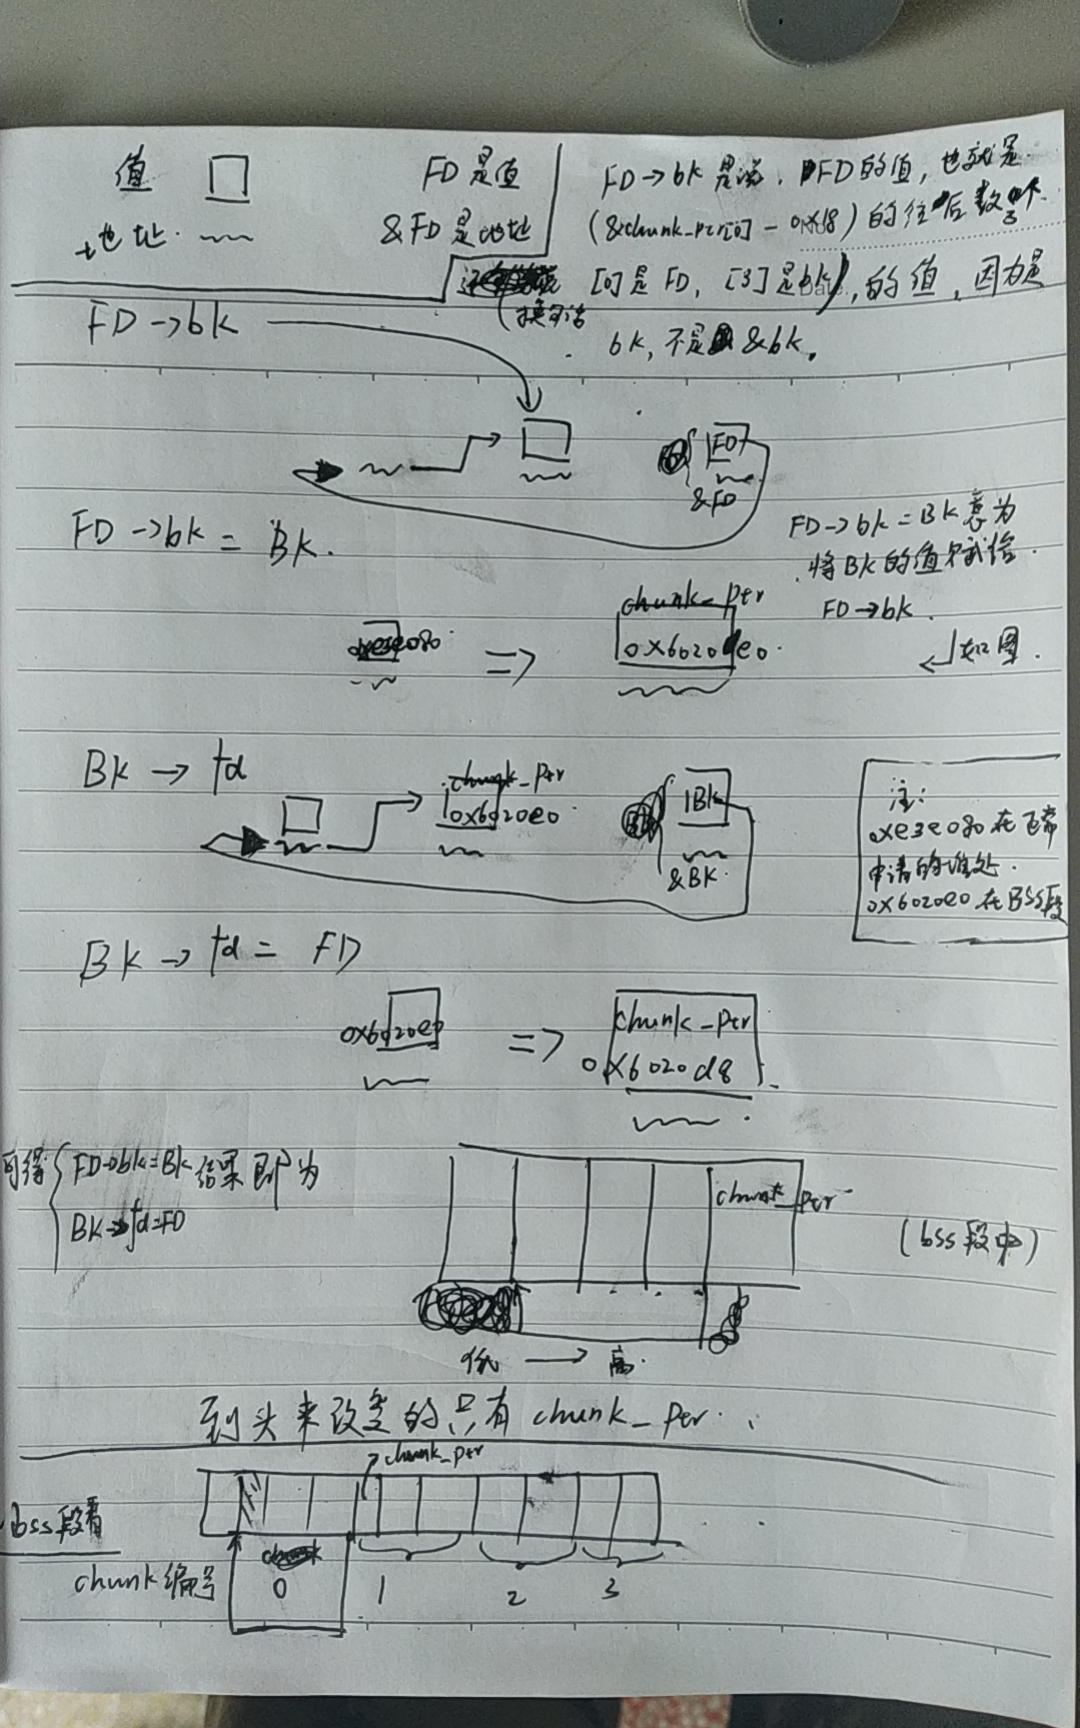 值
地址
FD是值
&FD是地址
FD→bk是说, FD的值,也就是
(&chunk_ptr[0] - 0x18)的往后数3个
(换句话
[0]是FD, [3]是bk),的值,因为是
bk,不是&bk。
FD→bk
FD
&FD
FD→bk = BK.
FD→bk = BK意为
将BK的值赋给
FD→bk.
如图.
0xe3e080
=>
chunk_ptr
0x6020e0
BK → fd
chunk_ptr
0x6020e0
BK
&BK
注:
0xe3e080在正常
申请的堆处.
0x6020e0在BSS段
BK → fd = FD
0x6020e0
=>
chunk_ptr
0x6020d8
可得
FD→bk=BK
BK→fd=FD
结果即为
chunk_ptr
(bss段中)
低 → 高
到头来改变的只有chunk_ptr.
chunk_ptr
bss段看
chunk编号
0 1 2 3